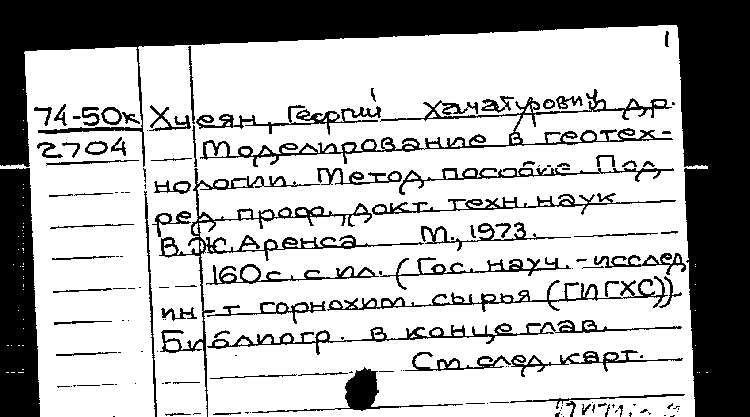 1
74-50к Хчеян, Георгий Хачатурович и др.
2704 Моделирование в геотех-
нологии. Метод. пособие. Под
ред. проф., докт. техн. наук
В.Ж. Аренса. М., 1973.
160 с. с ил. (Гос. науч.-исслед.
ин-т горнохим. сырья (ГИГХС)).
Библиогр. в конце глав.
См. след. карт.